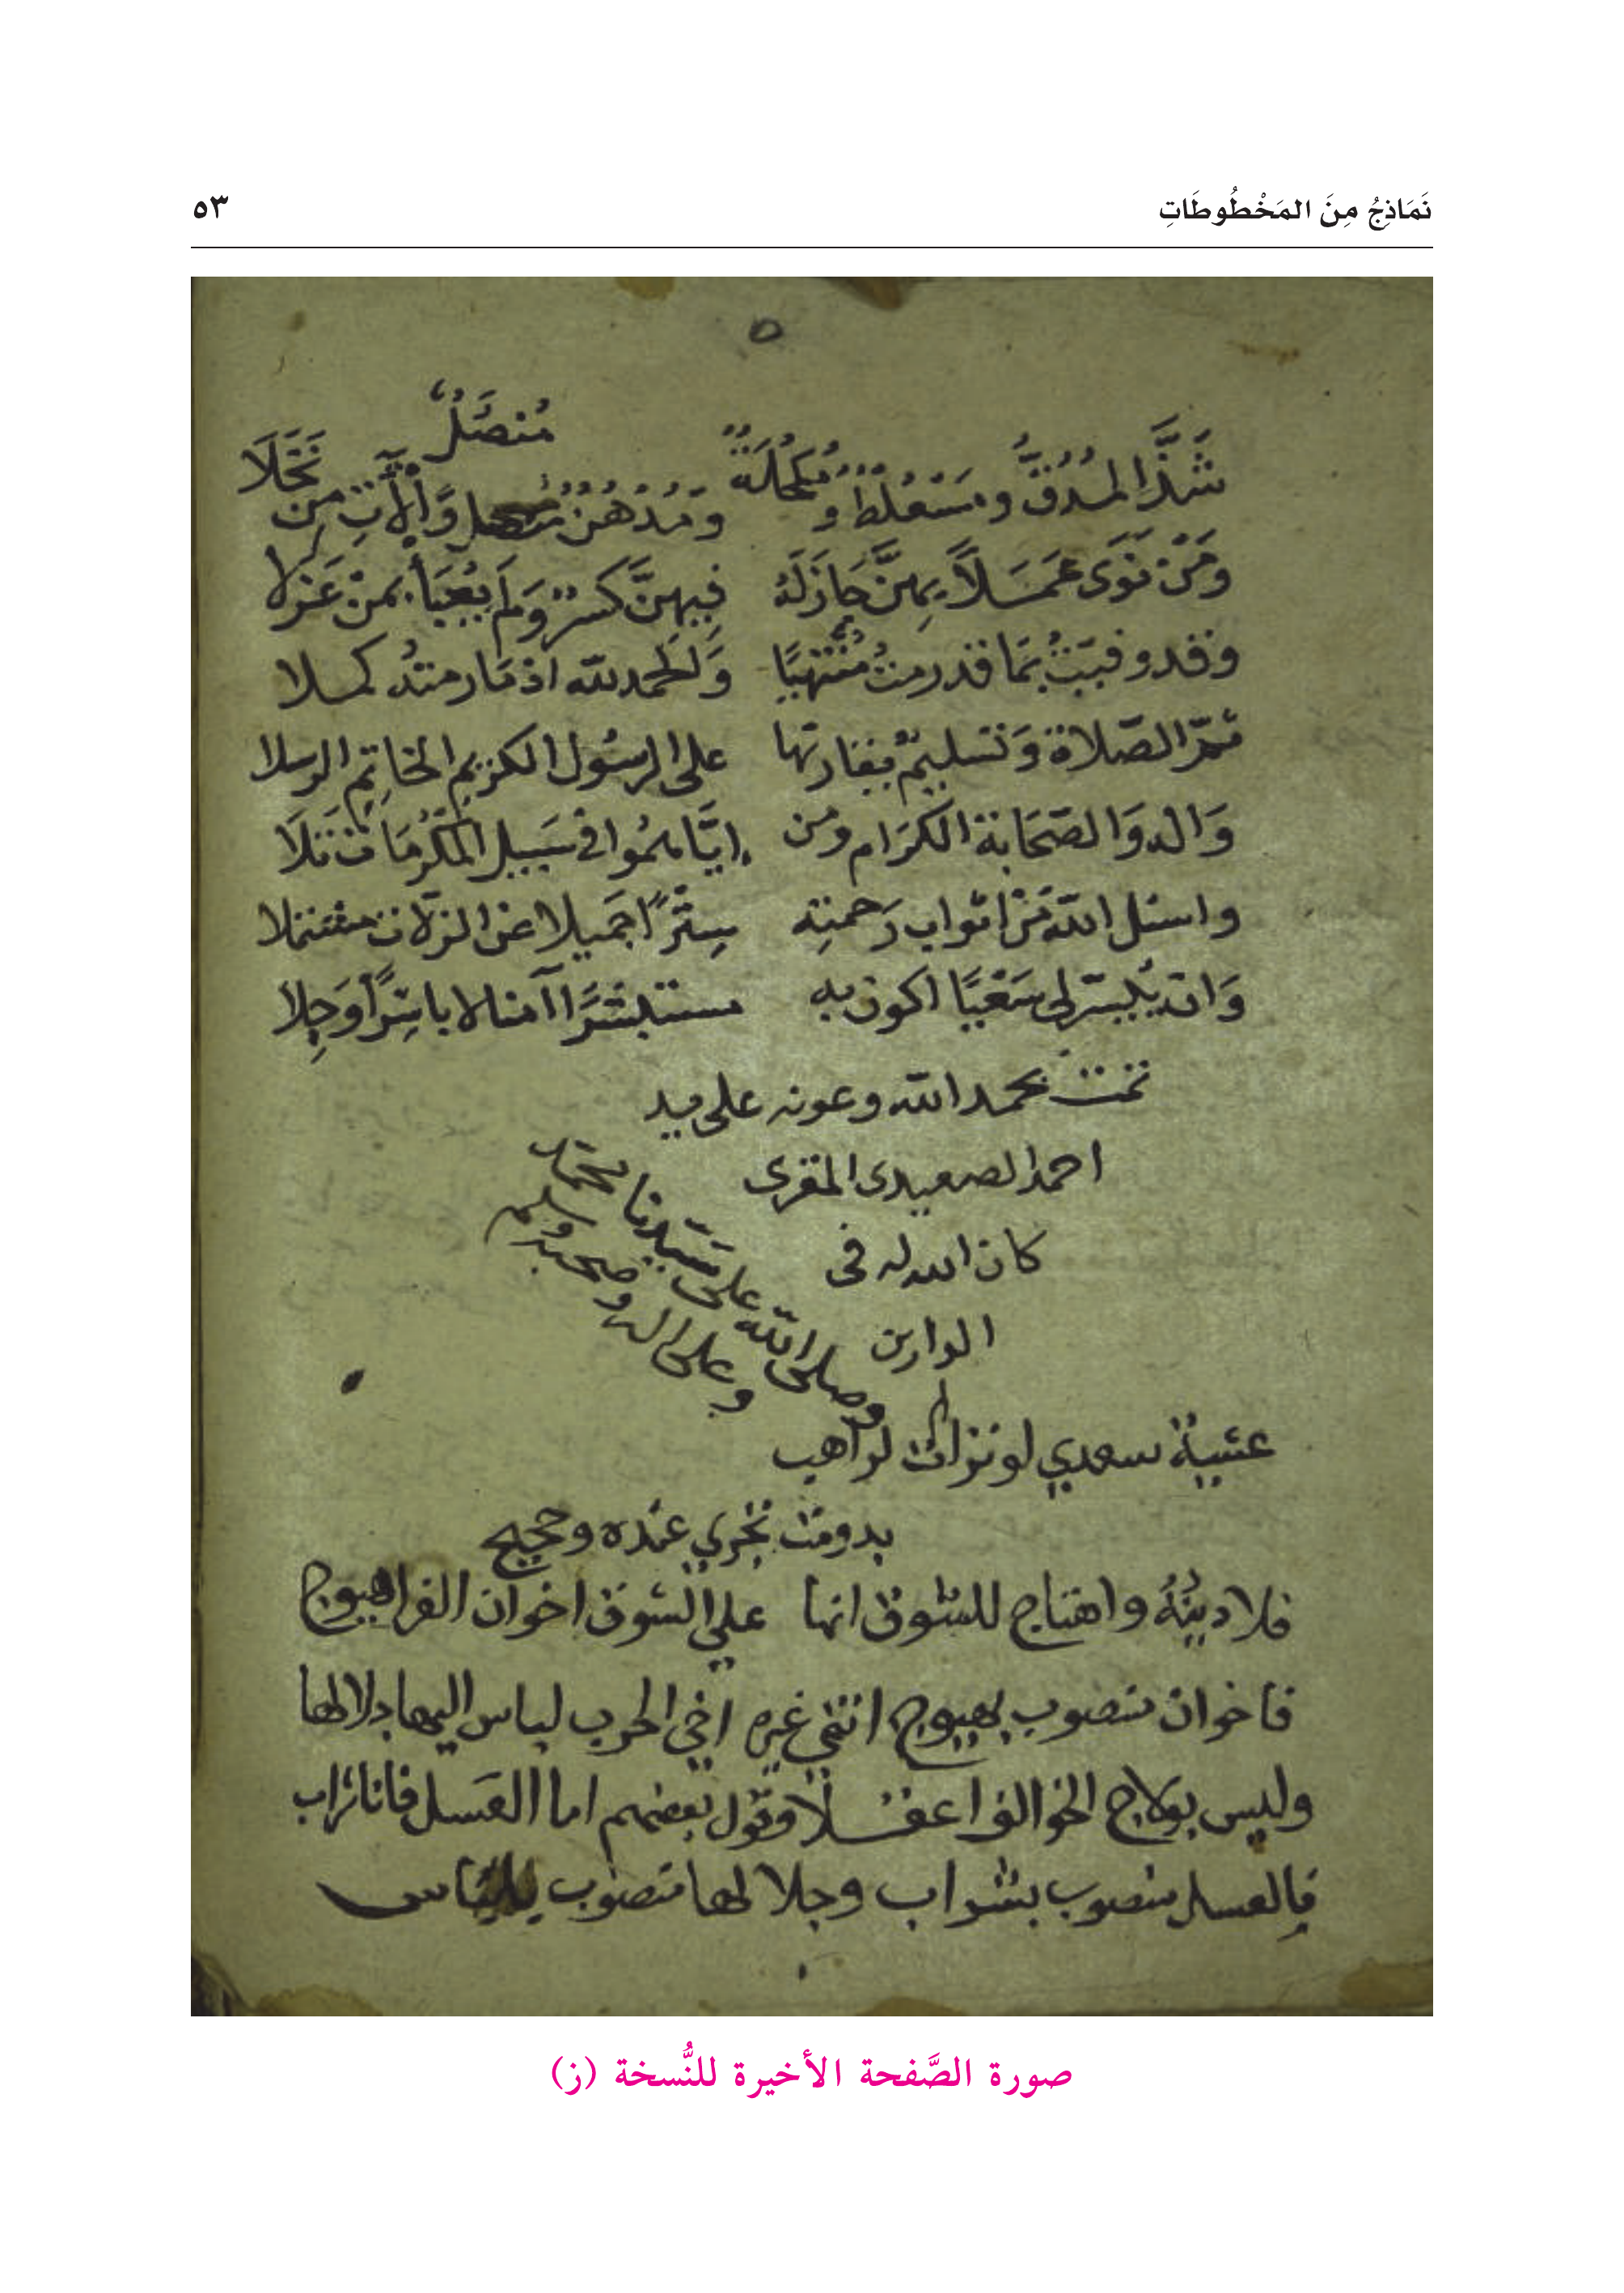 نَمَاذِجُ مِنَ المَخْطُوطَاتِ
٥٣
مُنْصَلُ
شَذَّ المُدُقُّ ومُسْعُطٌ ومُكْحُلَةٌ ومُدْهُنٌ وَالآتِ مِن نَخَلَا
ومَنْ نَوَى عَمَلاً بِهِنَّ جَازَ لَهُ فِيهِنَّ كَسْرٌ وَلَم يُعْبَأْ بِمَنْ عَذَلا
وقد وفيتُ بِمَا قد رمتُ مُنْتَهِيًا وَالحمد لله اذ مَا رمته كملا
ثمَّ الصَّلاة وَتسليمٌ يقارنها على الرسُول الكريم الخاتِم الرسلا
وَاله وَالصَّحَابة الكرَام ومن إيَّاهمُوا في سَبيل المكْرُمَات تَلَا
واسئل الله مَنْ اثواب رَحمته سِتْرًا جَميلا عن الزلات مشتملا
وَان يُيَسّر لي سَعْيًا اكون به مستبشرًا آمنا لا باسِرًا وَجِلا
تمت بحمد الله وعونه على يد
احمد الصعيدى المقرى
كان الله له فى
الدارين
وصلى الله على سَيّدنا محمّد
وعلى اله وصحبه وسلم
عشية سعدي لو تراات لراهب
بدومت تجري عنده وحجيج
فلا دينَهُ واهتاج للشوق انها علي الشوق اخوان العزا هيوج
فاخوان منصوب بهيوج انتهي غيره اخي الحرب لباس اليها جلالها
وليس بولاج الخوالف اعقلا وقول بعضهم اما العَسل فانا شراب
فالعسل منصوب بشراب وجلالها منصوب بلباس
صورة الصَّفحة الأخيرة للنُّسخة (ز)